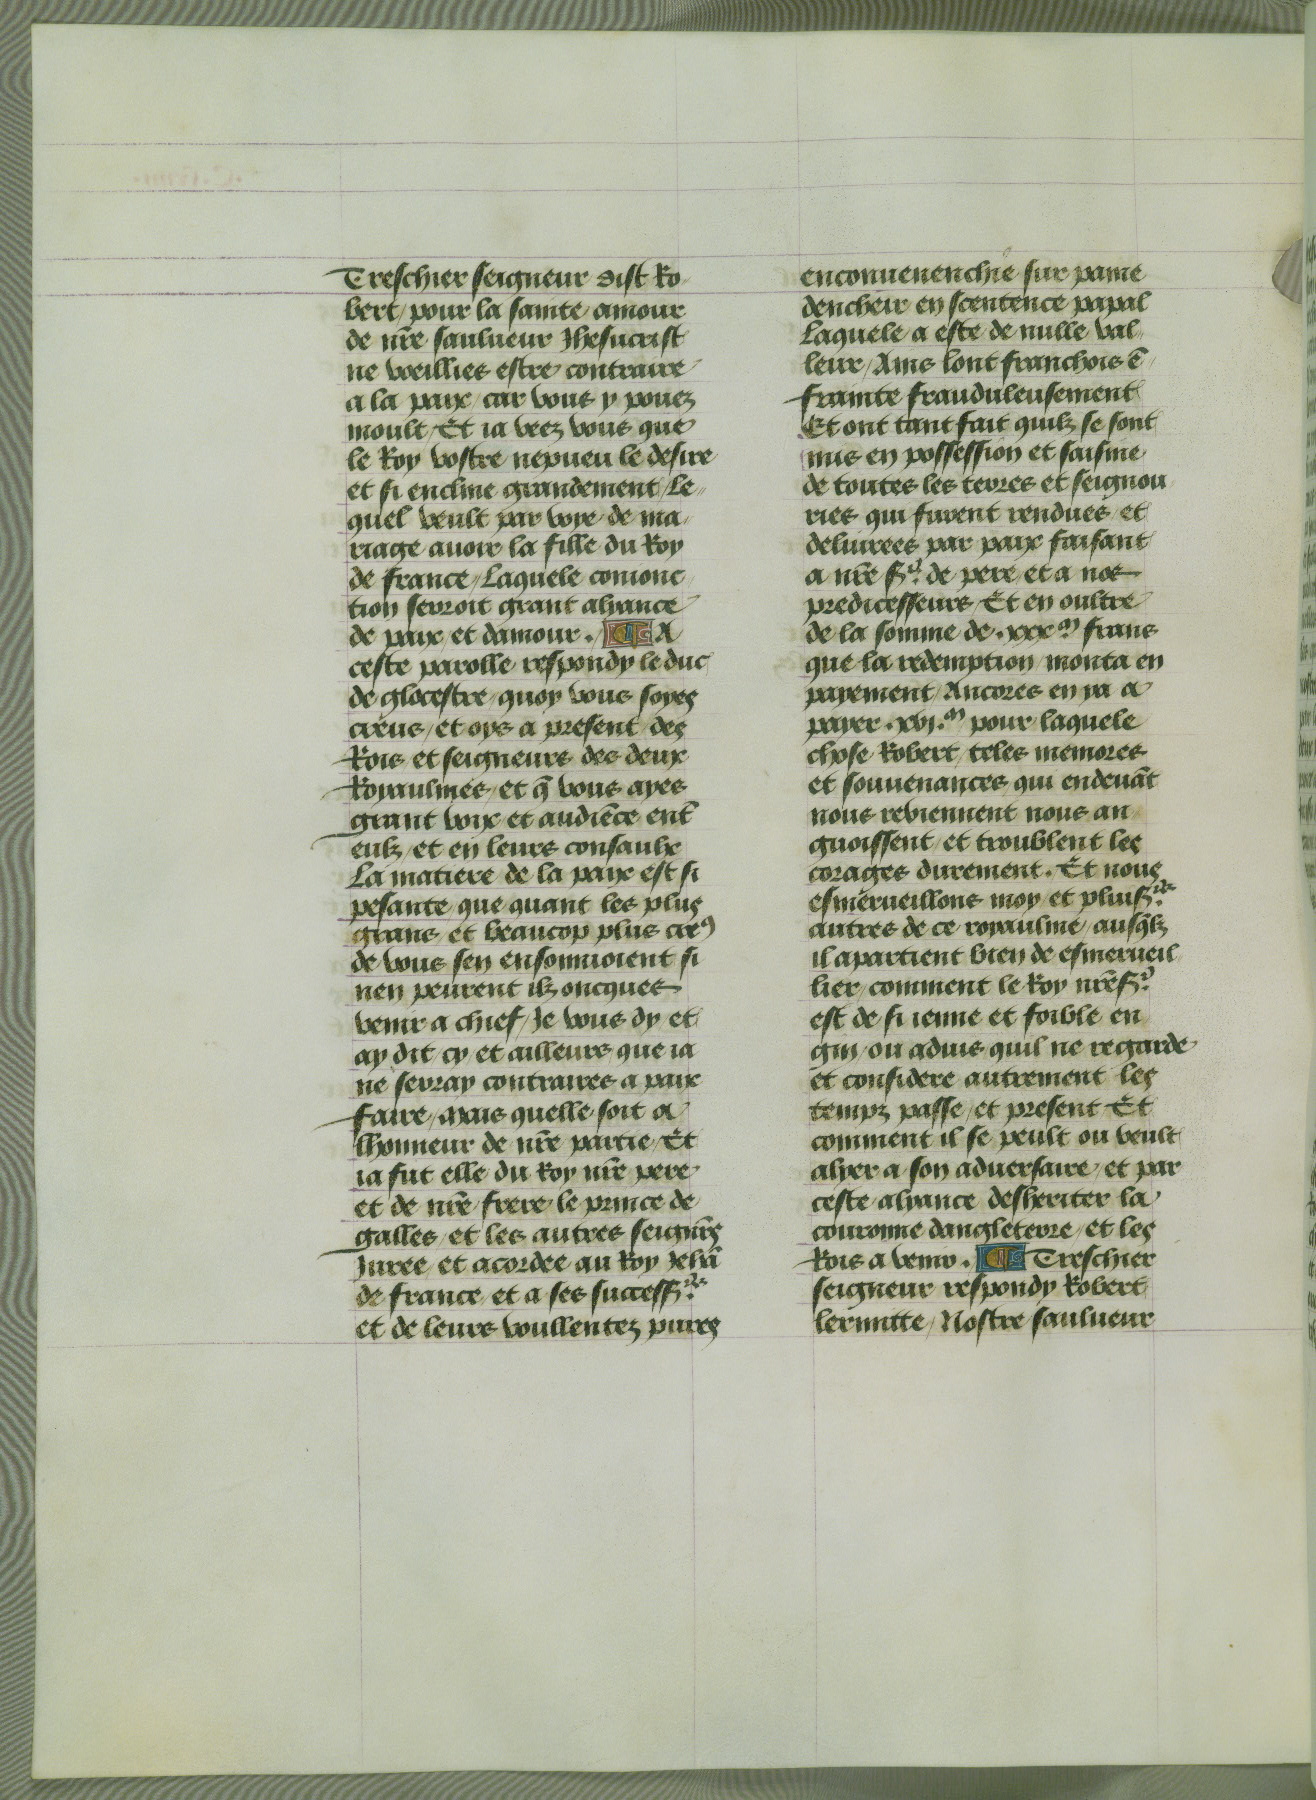 Treschier seigneur dist Ro
bert / pour la sainte amour
de nr̄e saulueur Jhesucrist
ne voeillies estre contraire
a la paix / car vous y pouez
moult / Et ia veez vous que
le Roy vostre nepueu le desire
et si encline grandement / Le
quel veult par voye de ma
riage auoir la fille du Roy
de france / Laquele conionc
tion seroit grant aliance
de paix et damour . A
ceste parolle respondy le duc
de glocestre / quoy vous soyes
creus / et oys a present des
Rois et seigneurs des deux
Royaulmes / et q̄ vous ayes
grant voix et audiēce ent̄
eulz / et en leurs consaulx
La matiere de la paix est si
pesante que quant les plus
grans et beaucop plus creꝰ
de vous sen ensonnioient si
nen peurent ilz oncques
venir a chief / Je vous dy et
ay dit cy et ailleurs que ia
ne seray contraires a paix
faire / mais quelle soit a
lhonneur de nr̄e partie / Et
ia fut elle du Roy nr̄e pere
et de nr̄e frere le prince de
galles / et les autres seignr̄s
Juree / et acordee au Roy Jehā
de france / et a ses success.rs
et de leurs voullentez pures
enconuenenchie sur paine
dencheir en scentence papal
Laquele a este de nulle val
leur / Ains lont franchois ē
frainte frauduleusement
Et ont tant fait quilz se sont
mis en possession et saisine
de toutes les terres et seignou
ries qui furent rendues et
deliurees par paix faisant
a nr̄e s.r de pere et a nos
predicesseurs / Et en oultre
de la somme de .xxx.m frans
que la redemption monta en
payement / Ancores en ya a
payer .xvj.m pour laquele
chose Robert / teles memores
et souuenances qui endeuāt
nous reuiennent nous an
guoissent / et troublent les
corages durement . Et nous
esmerueillons moy et pluis.rs
autres de ce royaulme / ausq̄lz
il apartient bien de esmerueil
lier / comment le Roy nr̄e s.r
est de si ienne et foible en
gin / ou aduis quil ne regarde
et considere autrement les
tempz passe / et present Et
comment il se peult ou veult
alyer a son aduersaire / et par
ceste alyance desheriter la
couronne dangleterre / et les
Rois a venir . Treschier
seigneur respondy Robert
lermitte / Nostre saulueur